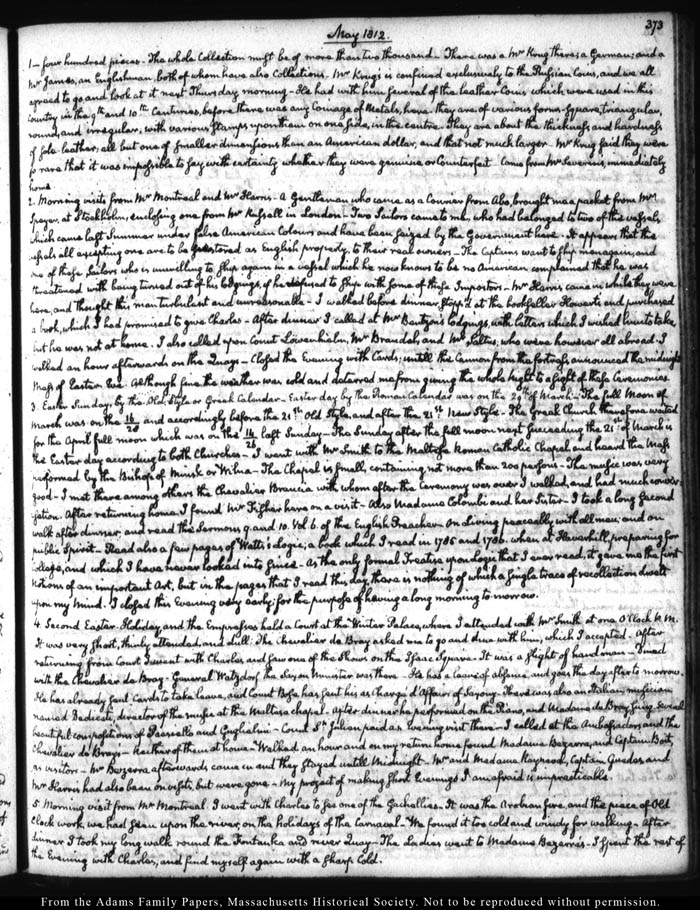 373
May 1812.
1 — four hundred pieces — The whole Collection must be of more than two thousand — There was a Mr Krug there; a German; and a
Mr James, an Englishman both of whom have also Collections. Mr Krug's is confined exclusively to the Russian Coins, and we all
agreed to go and look at it next Thursday morning — He had with him several of the leather Coins which were used in this
Country in the 9th and 10th Centuries, before there was any Coinage of Metals, here. They are of various forms. Square, triangular,
round, and irregular; with various Stamps upon them on one side, in the centre. They are about the thickness and hardness
of sole-leather; all but one of smaller dimensions than an American dollar, and that not much larger. Mr Krug said they were
so rare that it was impossible to say with certainty whether they were genuine or Counterfeit. Came from Mr Severin's immediately
home.
2. Morning visits from Mr Montreal and Mr Harris — A Gentleman who came as a Courier from Abo, brought me a packet from Mr
Speyer, at Stockholm, enclosing one from Mr Russell in London — Two Sailors came to me, who had belonged to two of the vessels
which came last Summer under false American Colours and have been seized by the Government here. It appears that the
vessels all excepting one are to be restored as English property to their real owners — The Captains want to ship men again; and
one of these Sailors who is unwilling to ship again in a vessel which he now knows to be no American complained that he was
threatened with being turned out of his lodgings, if he refused to ship with some of these Impostors — Mr Harris came in while they were
here, and thought this man turbulent and unreasonable — I walked before dinner, stopp'd at the bookseller Klostermann's and purchased
a book, which I had promised to give Charles — After dinner I called at Mr Bentzon's lodgings, with letters which I wished him to take,
but he was not at home. I also called upon Count Löwenhielm, Mr Brandel, and Mr Saltus, who were however all abroad. I
walked an hour afterwards on the Quays — Closed the Evening with Cards; untill the Cannon from the fortress announced the midnight
Mass of Easter Eve. Although fine, the weather was cold and deterred me from giving the whole Night to a sight of these Ceremonies.
3. Easter Sunday; by the Old Style or Greek Calendar — Easter day by the Roman Calendar was on the 29th of March — The full Moon of
March was on the 16/28 and accordingly before the 21st Old Style, and after the 21st New Style — The Greek Church therefore waited
for the April full moon which was on the 14/26 last Sunday — The Sunday after the full moon next succeeding the 21st of March is
the Easter day according to both Churches — I went with Mr Smith to the Maltese Roman Catholic Chapel, and heard the Mass
performed by the Bishop of Minsk or Wilna — The Chapel is small, containing not more than 200 persons — The music was very
good — I met there among others the Chevalier Brancia with whom after the Ceremony was over I walked, and had much conver-
sation. After returning home, I found Mr Fisher here on a visit — Also Madame Colombi and her Sister — I took a long second
walk after dinner, and read the Sermons 9. and 10. Vol. 6. of the English Preacher. On living peaceably with all men, and on
public Spirit. Read also a few pages of Watts's Logic, a book which I read in 1785 and 1786. when at Haverhill, preparing for
College, and which I have never looked into since — As the only formal Treatise upon logic that I ever read, it gave me the first
Notions of an important Art, but in the pages that I read this day, there is nothing of which a single trace of recollection dwelt
upon my Mind. I closed this Evening very early; for the purpose of having a long morning to-morrow.
4. Second Easter-Holiday, and the Empress's held a Court at the Winter Palace, where I attended with Mr Smith at one O'Clock P.M.
It was very short, thinly attended, and dull. The Chevalier de Bray asked me to go and dine with him, which I accepted. After
returning from Court I went with Charles and saw one of the Shows on the Isaac Square. It was a slight of hand man — Dined
with the Chevalier de Bray. General Watzdorf the Saxon Minister was there — He has a leave of absence and goes the day after to morrow.
He has already sent Cards to take leave, and Count Bose has sent his as Chargé d'Affaires of Saxony. There was also an Italian, musician
named director of the music at the Maltese chapel. After dinner he performed on the Piano, and Madame de Bray sung several
beautiful compositions of Paesiello and Guglielmi — Count St Julien paid an evening visit there — I called at the Ambassador's, and the
Chevalier de Bray's — Neither of them at home — Walked an hour and on my return home found Madame Bezerra, and Captain Bait,
as visitors — Mr Bezerra afterwards came in and they stayed until Midnight — Mr and Madame Raymond, Captain Guedes and
Mr Harris had also been on visits, but were gone — My project of making short Evenings I am afraid is impracticable.
5. Morning visit from Mr Montreal. I went with Charles to see one of the Spectacles — It was the Arabian fire, and the piece of Old
Clock work, we had seen upon the river, on the holidays of the Carnaval — We found it too cold and windy for walking — After
dinner I took my long walk round the Fontanka and river Quay — The Ladies went to Madame Bezerra's — I spent the rest of
the Evening with Charles, and find myself again with a sharp Cold.
From the Adams Family Papers, Massachusetts Historical Society. Not to be reproduced without permission.